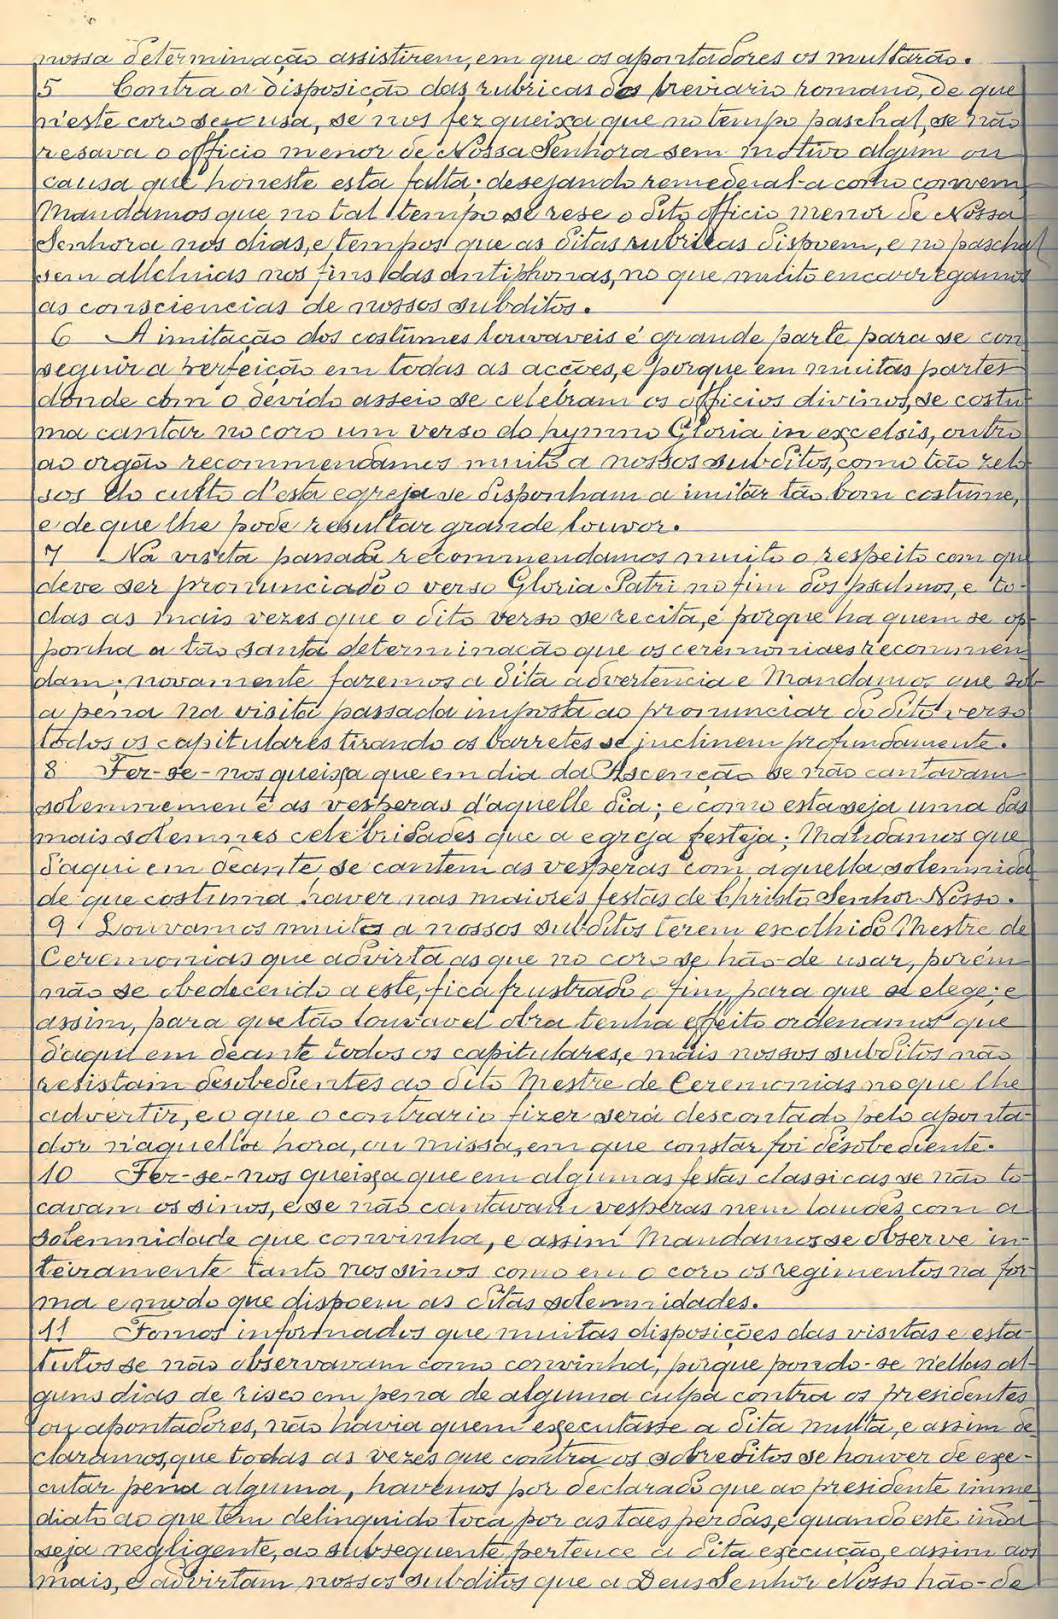 nossa determinação assistirem, em que os apontadores os multarão.
5 Contra a disposição das rubricas do breviario romano, de que
n'este coro se usa, se nos fez queixa que no tempo paschal, se não
resava o officio menor de Nossa Senhora sem motivo algum ou
causa que honeste esta falta: desejando remederal-a como convem,
Mandamos que no tal tempo se rese o dito officio menor de Nossa
Senhora nos dias, e tempos que as ditas rubricas dispoem, e no paschal
sem alleluias nos fins das antiphonas, no que muito encarregamos
as consciencias de nossos subditos.
6 A imitação dos costumes louvaveis é grande parte para se con
seguir a perfeição em todas as acções, e porque em muitas partes
donde com o devido asseio se celebram os officios divinos, se costu
ma cantar no coro um verso do hymno Gloria in excelsis, outro
ao orgão recommendamos muito a nossos subditos, como tão zelo
sos do culto d'esta egreja se disponham a imitar tão bom costume,
e de que lhe pode resultar grande louvor.
7 Na visita passada recommendamos muito o respeito com que
deve ser pronunciado o verso Gloria Patri no fim dos psalmos, e to-
das as mais vezes que o dito verso se recita, e porque ha quem se op-
ponha a tão santa determinação que os ceremoniaes recommen
dam; novamente fazemos a dita advertencia e Mandamos que sob-
a pena na visita passada imposta ao pronunciar do dito verso
todos os capitulares tirando os barretes se inclinem profundamente.
8 Fez-se-nos queixa que em dia da Ascenção se não cantavam
solemnemente as vesperas d'aquelle dia; e como esta seja uma das
mais solemnes celebridades que a egreja festeja; Mandamos que
d'aqui em deante se cantem as vesperas com aquella solemnida
de que costuma haver nas maiores festas de Christo Senhor Nosso.
9 Louvamos muito a nossos subditos terem escolhido Mestre de
Ceremonias que advirta as que no coro se hão-de usar, porém
não se obedecendo a este, fica frustrado o fim, para que se elege; e
assim, para que tão louvavel obra tenha effeito ordenamos que
d'aqui em deante todos os capitulares, e mais nossos subditos não
resistam desobedientes ao dito Mestre de Ceremonias no que lhe
advertir, e o que o contrario fizer será descontado pelo aponta-
dor n'aquella hora, ou missa, em que constar foi desobediente.
10 Fez-se-nos queixa que em algumas festas classicas se não to-
cavam os sinos, e se não cantavam vesperas nem laudes com a
solemnidade que convinha, e assim Mandamos se observe in-
teiramente tanto nos sinos como em o coro os regimentos na for
ma e modo que dispoem as ditas solemnidades.
11 Fomos informados que muitas disposições das visitas e esta-
tutos se não observavam como convinha, porque pondo-se n'ellas al-
guns dias de risco em pena de alguma culpa contra os presidentes
ou apontadores, não havia quem executasse a dita multa, e assim de
claramos, que todas as vezes que contra os sobreditos se houver de exe-
cutar pena alguma, havemos por declarado que ao presidente imme
diato ao que tem delinquido toca por as taes perdas, e quando este inda
seja negligente, ao subsequente pertence a dita execução, e assim aos
mais, e advirtam nossos subditos que a Deus Senhor Nosso hão-de